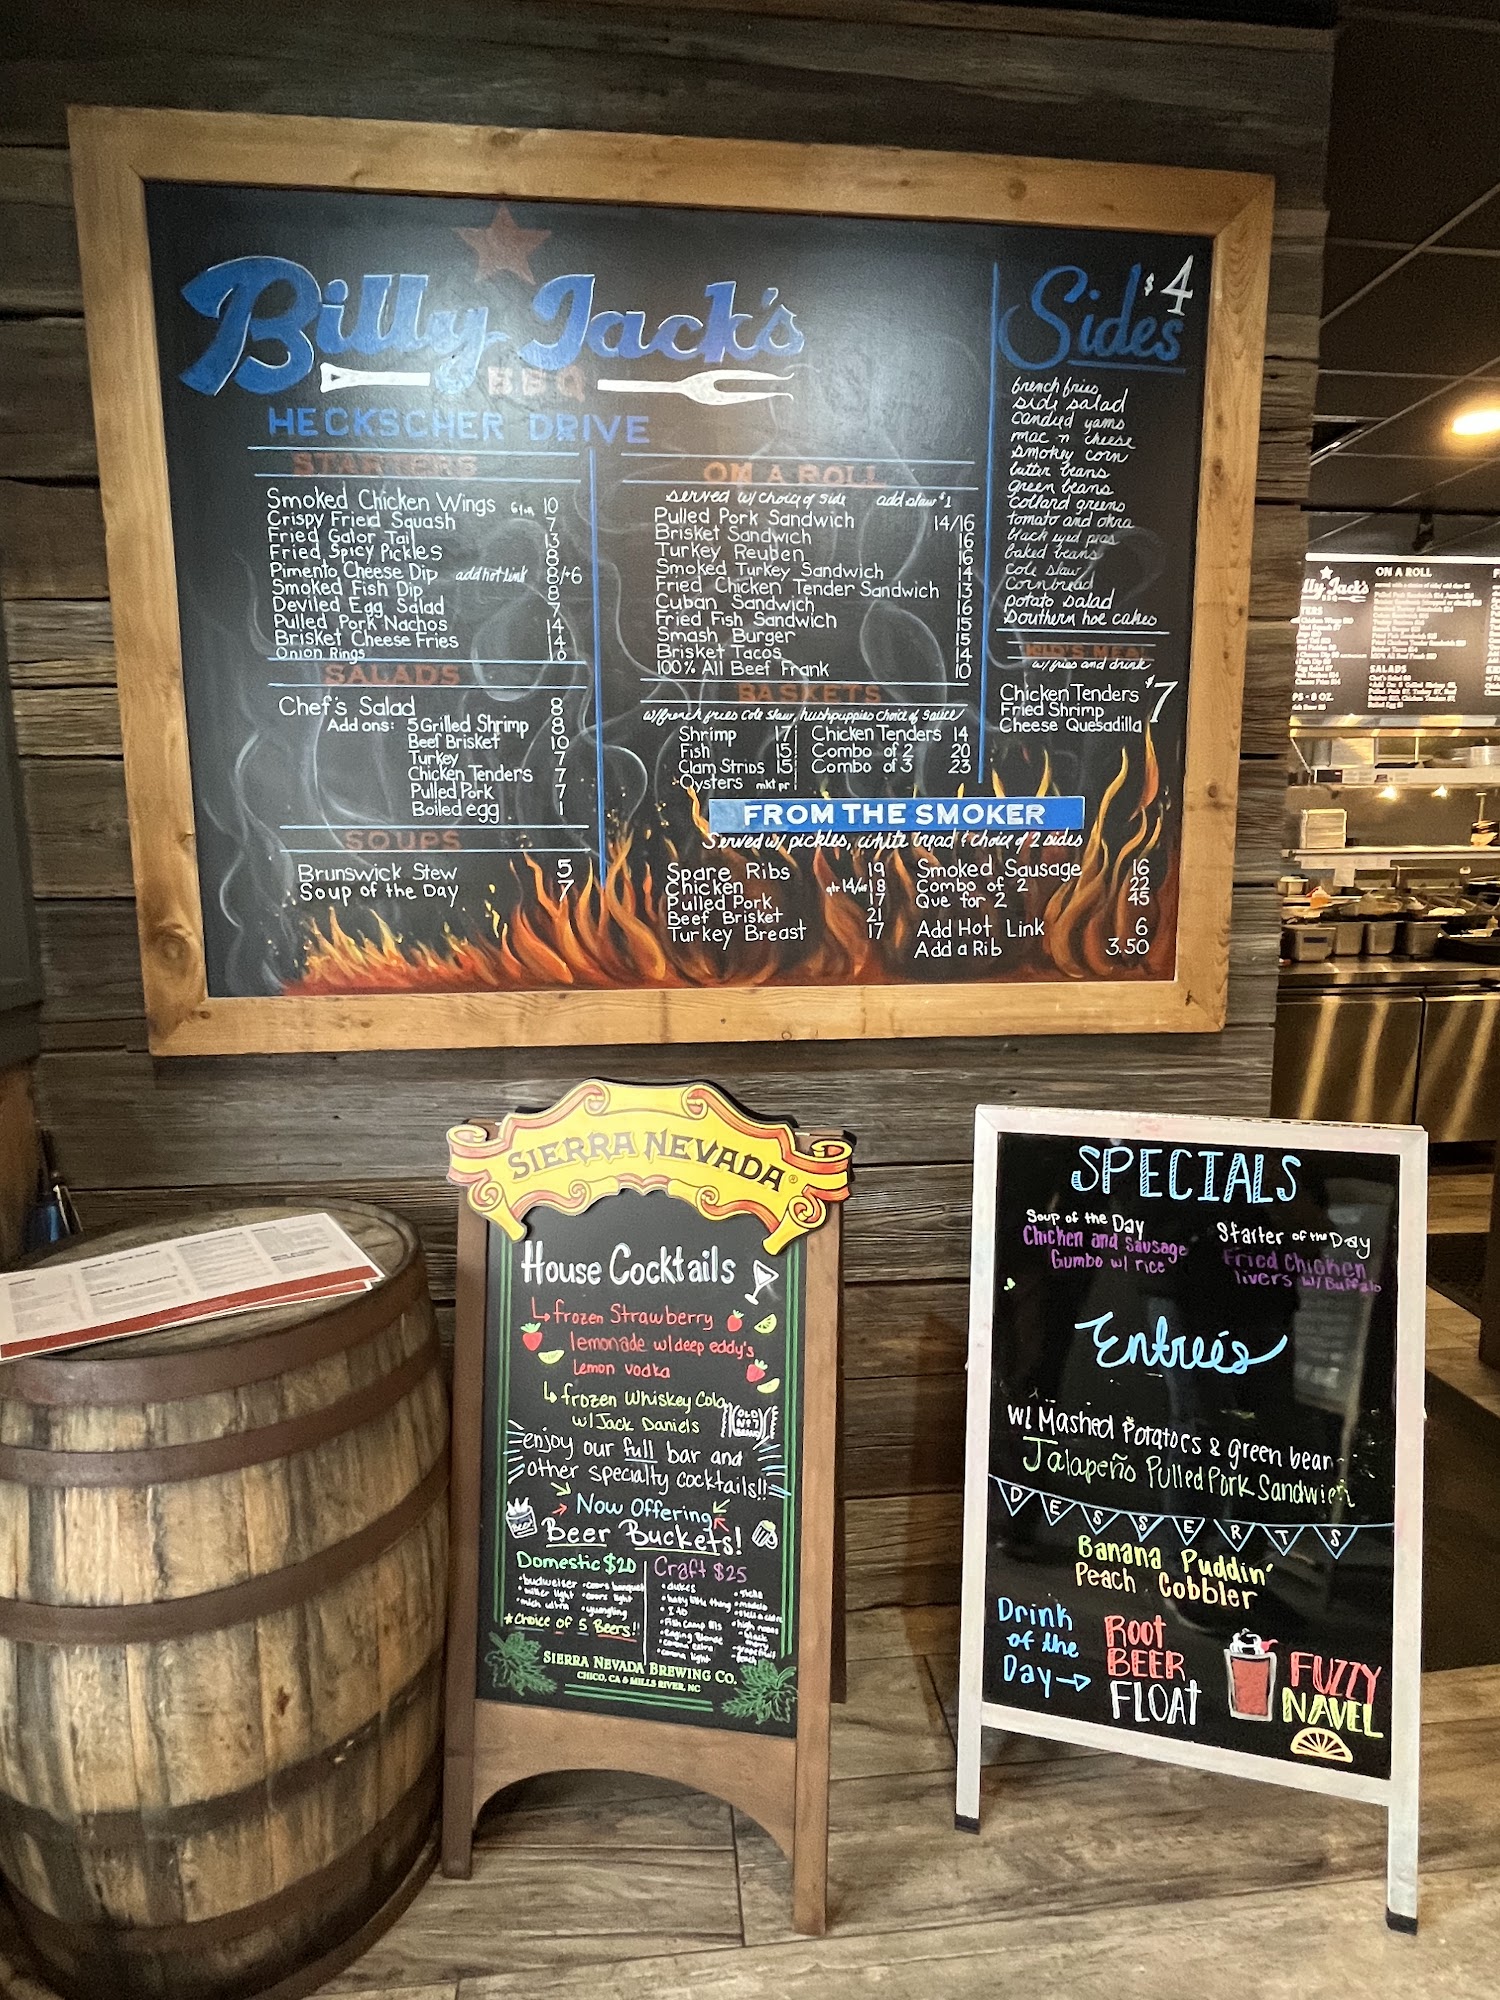 Billy Jack's
BBQ
HECKSCHER DRIVE
STARTERS
Smoked Chicken Wings 10
Crispy Fried Squash 7
Fried Gator Tail 13
Fried Spicy Pickles 8
Pimento Cheese Dip add hot link 8/+6
Smoked Fish Dip 8
Deviled Egg Salad 7
Pulled Pork Nachos 14
Brisket Cheese Fries 14
Onion Rings
SALADS
Chef's Salad 8
Add ons: 5 Grilled Shrimp 8
Beef Brisket 10
Turkey 7
Chicken Tenders 7
Pulled Pork 7
Boiled egg 1
SOUPS
Brunswick Stew 5
Soup of the Day 7
ON A ROLL
served w/ choice of side add slaw $1
Pulled Pork Sandwich 14/16
Brisket Sandwich 16
Turkey Reuben 16
Smoked Turkey Sandwich 14
Fried Chicken Tender Sandwich 13
Cuban Sandwich 16
Fried Fish Sandwich 15
Smash Burger 15
Brisket Tacos 14
100% All Beef Frank 10
BASKETS
w/french fries Cole slaw, hushpuppies choice of sauce
Shrimp 17 Chicken Tenders 14
Fish 15 Combo of 2 20
Clam Strips 15 Combo of 3 23
Oysters mkt pr
FROM THE SMOKER
Served w/ pickles, white bread & choice of 2 sides
Spare Ribs 19
Chicken qtr 14/ 18
Pulled Pork 17
Beef Brisket 21
Turkey Breast 17
Smoked Sausage 16
Combo of 2 22
Que for 2 45
Add Hot Link 6
Add a Rib 3.50
Sides $4
french fries
side salad
candied yams
mac n cheese
smokey corn
butter beans
green beans
collard greens
tomato and okra
black eyed peas
baked beans
cole slaw
cornbread
potato salad
southern hoe cakes
KID'S MEAL
w/fries and drink
Chicken Tenders $7
Fried Shrimp
Cheese Quesadilla
ON A ROLL
SALADS
SIERRA NEVADA®
House Cocktails
frozen Strawberry
lemonade w/deep eddy's
lemon vodka
frozen Whiskey Cola
w/ Jack Daniels
OLD
No 7
enjoy our full bar and
other specialty cocktails!!
Now Offering
Beer Buckets!
BEER
Domestic $20
•budweiser •coors banquet
•miller light •coors light
•mich ultra •yuengling
*Choice of 5 Beers!!
Craft $25
•dukes
•I-10
•corona extra
•corona light
•modelo
•high noons
black
grapefruit
peach
SIERRA NEVADA BREWING CO.
CHICO, CA & MILLS RIVER, NC
SPECIALS
Soup of the Day
Chicken and Sausage
Gumbo w/ rice
Starter of the Day
Fried Chicken
livers w/ Buffalo
Entreés
w/ Mashed Potatoes & green bean
Jalapeño Pulled Pork Sandwich
DESSERTS
Banana Puddin'
Peach Cobbler
Drink
of the
Day
ROOT
BEER
FLOAT
FUZZY
NAVEL